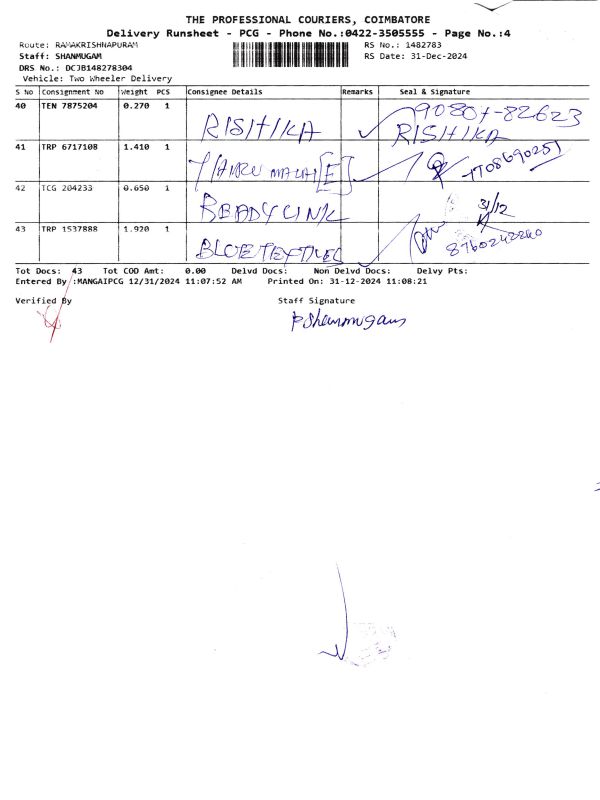 THE PROFESSIONAL COURIERS, COIMBATORE
Delivery Runsheet - PCG - Phone No.:0422-3505555 - Page No.:4
Route: RAMAKRISHNAPURAM RS No.: 1482783
Staff: SHANMUGAM RS Date: 31-Dec-2024
DRS No.: DCJB148278304
Vehicle: Two Wheeler Delivery
S No Consignment No Weight PCS Consignee Details Remarks Seal & Signature
40 TEN 7875204 0.270 1 RISHIKA 90807-82623
RISHIKA
41 TRP 6717108 1.410 1 [E]
42 TCG 204233 0.650 1 31/12
43 TRP 1537888 1.920 1 BLUE TEXTILES 8760242260
Tot Docs: 43 Tot COD Amt: 0.00 Delvd Docs: Non Delvd Docs: Delvy Pts:
Entered By :MANGAIPCG 12/31/2024 11:07:52 AM Printed On: 31-12-2024 11:08:21
Verified By Staff Signature
P Shanmugam